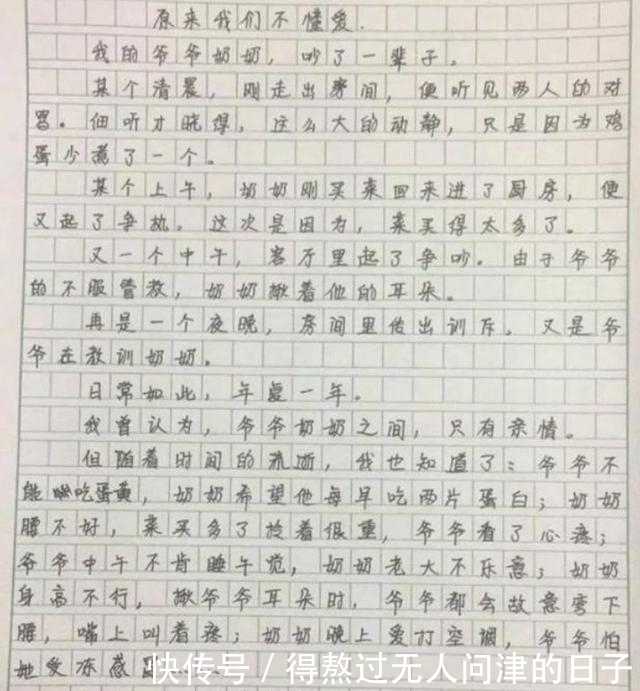 原来我们不懂爱.
我的爷爷奶奶，吵了一辈子。
某个清晨，刚走出房间，便听见两人的对
骂。细听才晓得，这么大的动静，只是因为鸡
蛋少煮了一个。
某个上午，奶奶刚买菜回来进了厨房，便
又起了争执。这次是因为，菜买得太多了。
又一个中午，客厅里起了争吵。由于爷爷
的不服管教，奶奶揪着他的耳朵。
再是一个夜晚，房间里传出训斥。又是爷
爷在教训奶奶。
日常如此，年复一年。
我曾认为，爷爷奶奶之间，只有亲情。
但随着时间的流逝，我也知道了：爷爷不
能吃蛋黄，奶奶希望他每早吃两片蛋白；奶奶
腰不好，菜买多了拎着很重，爷爷看了心疼；
爷爷中午不肯睡午觉，奶奶老大不乐意；奶奶
身高不行，揪爷爷耳朵时，爷爷都会故意弯下
腰，嘴上叫着疼；奶奶晚上爱打空调，爷爷怕
她受冻感
快传号 / 得熬过无人问津的日子